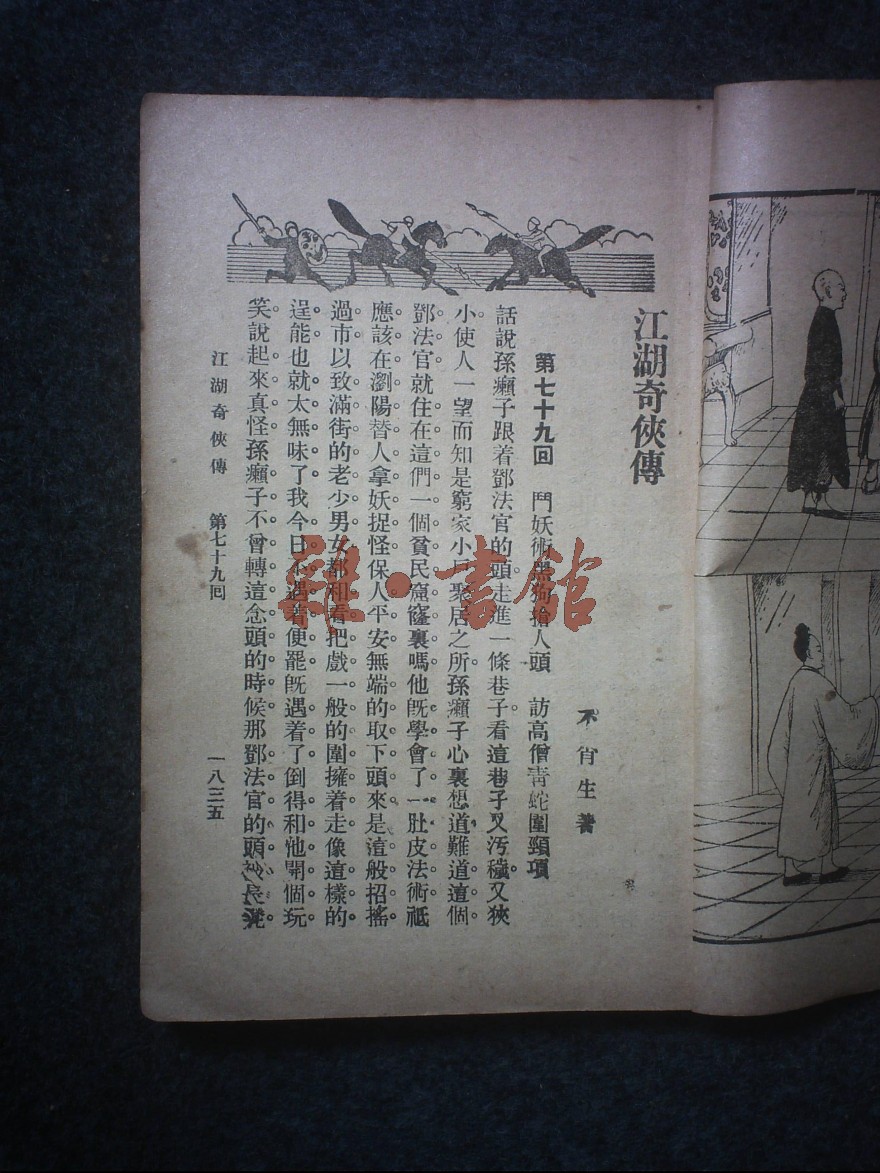 江湖奇俠傳
不肖生著
第七十九回 鬥妖術黑狗搶人頭 訪高僧靑蛇圍頸項
話說孫癩子跟着鄧法官的頭走進一條巷子看這巷子又汚穢又狹
小使人一望而知是窮家小戶聚居之所孫癩子心裏想道難道這個
鄧法官就住在這們一個貧民窟窿裏嗎他旣學會了一肚皮法術祗
應該在瀏陽替人拿妖捉怪保人平安無端的取下頭來是這般招搖
過市以致滿街的老少男女都和看把戲一般的圍擁着走像這樣的
逞能也就太無味了我今日不遇着便罷旣遇着了倒得和他開個玩
笑說起來眞怪孫癩子不曾轉這念頭的時候那鄧法官的頭
江湖奇俠傳 第七十九回 一八三五
雜·書館